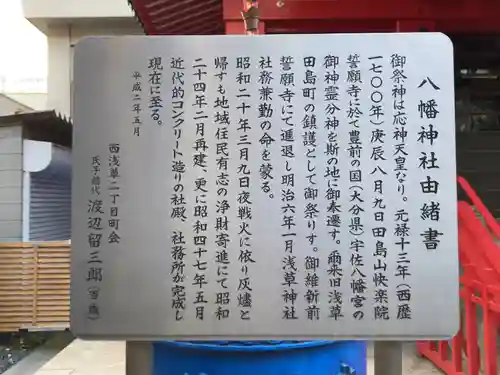 八幡神社由緒書
御祭神は応神天皇なり。元禄十三年(西歴
一七〇〇年)庚辰八月九日田島山快楽院
誓願寺に於て豊前の国(大分県)宇佐八幡宮の
御神霊分神を斯の地に御奉遷す。爾来旧浅草
田島町の鎮護として御祭りす。御維新前
誓願寺にて逓退し明治六年一月浅草神社
社務兼勤の命を蒙る。
昭和二十年三月九日夜戦火に依り灰燼と
帰すも地域住民有志の浄財寄進にて昭和
二十四年二月再建、更に昭和四十七年五月
近代的コンクリート造りの社殿、社務所が完成し
現在に至る。
平成二年五月
西浅草二丁目町会
氏子総代 渡辺留三郎